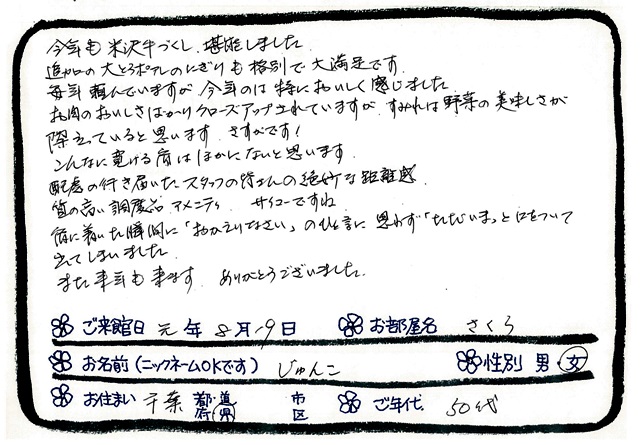 今年も米沢牛づくし、堪能しました。
追加の大とろポアレのにぎりも格別で大満足です。
毎年頼んでいますが今年のは特においしく感じました。
お肉のおいしさばかりクローズアップされていますが、すみれは野菜の美味しさが
際立っていると思います。さすがです！
こんなに寛げる宿はほかにないと思います。
配慮の行き届いたスタッフの皆さんの絶妙な距離感、
質の高い調度品、アメニティ サイコーですね
宿に着いた瞬間に「おかえりなさい」のひと言に思わず「ただいま」と口をついて
出てしまいました。
また来年も来ます。ありがとうございました。
ご来館日 元年8月19日 お部屋名 さくら
お名前(ニックネームOKです) じゅんこ 性別 男・女
お住まい 千葉 都・道・府・県 市・区 ご年代. 50代